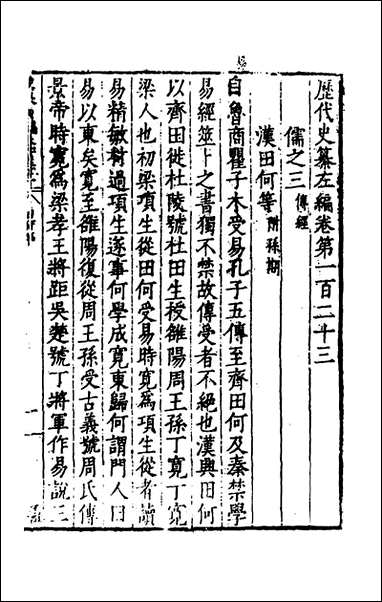 歷代史纂左編卷第一百二十三
儒之三 傳經
漢田何等 附孫期
自魯商瞿子木受易孔子五傳至齊田何及秦禁學
易經筮卜之書獨不禁故傳受者不絕也漢興田何
以齊田徙杜陵號杜田生授雒陽周王孫丁寬丁寬
梁人也初梁項生從田何受易時寬爲項生從者讀
易精敏材過項生遂事何學成寬東歸何謂門人曰
易以東矣寬至雒陽復從周王孫受古義號周氏傳
景帝時寬爲梁孝王將距吳楚號丁將軍作易說三